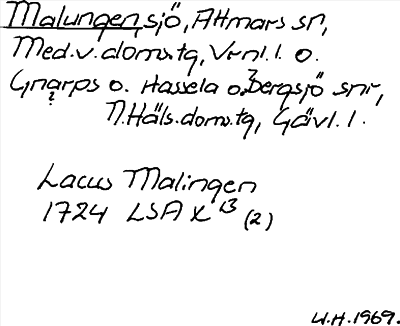 Malungen, sjö, Attmars sn,
Med.v.doms.tg, Vrnl. l. o.
Gnarps o. Hassela o. Bergsjö snr,
? ?
N.Häls.doms.tg, Gävl. l.
Lacus Malingen
1724 LSA X 13 (2)
U.H. 1969.